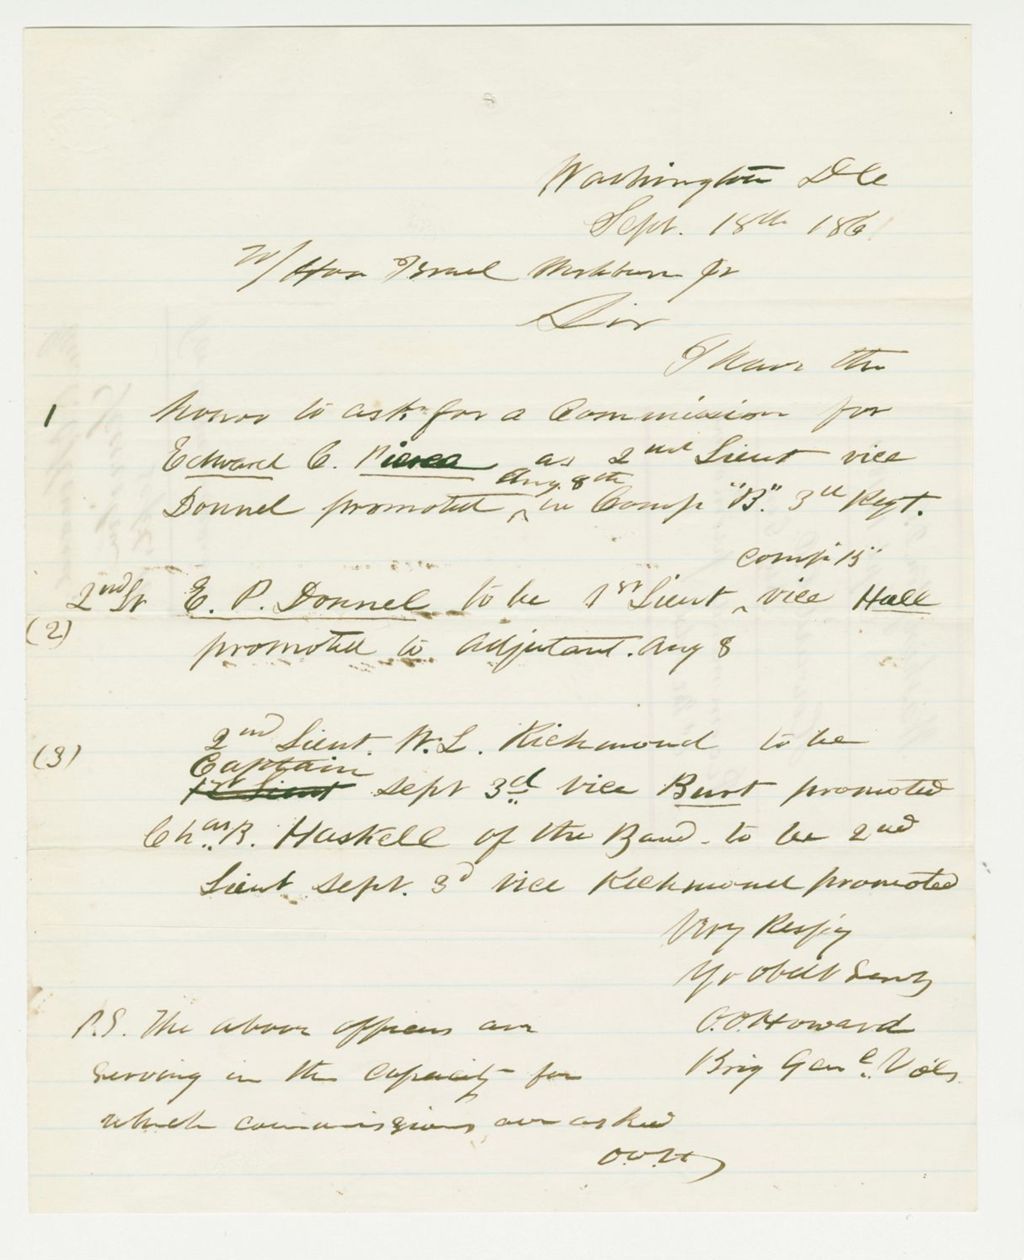 Washington D C
Sept. 18th 1861
To/ Hon Israel Washburn Jr
Sir
I have the
1 honor to ask for a Commission for
Edward C. Pierce as 2nd Lieut vice
Aug. 8th
Donnel promoted ^ in Comp "B". 3d Regt.
Comp. B
2nd Lt E. P. Donnel to be 1st Lieut ^ vice Hall
(2)
promoted to Adjutant. Aug 8
(3) 2nd Lieut. W. L. Richmond to be
Captain
1st Lieut Sept 3d vice Burt promoted
Chas. B. Haskell of the Band. to be 2nd
Lieut Sept. 3d vice Richmond promoted
Very Respy
Yr Obdt Servt
O.O. Howard
Brig Genl. Vols.
P.S. The above officers are
serving in the capacity for
which commissions are asked
O.O.H